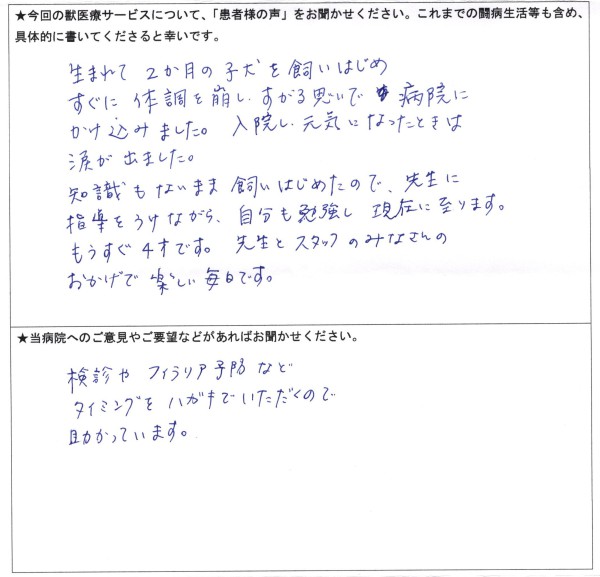 ★今回の獣医療サービスについて、「患者様の声」をお聞かせください。これまでの闘病生活等も含め、
具体的に書いてくださると幸いです。
生まれて 2か月の子犬を飼いはじめ
すぐに 体調を崩し、すがる思いで 病院に
かけ込みました。 入院し、元気になったときは
涙が出ました。
知識もないまま 飼いはじめたので、先生に
指導をうけながら、自分も勉強し 現在に至ります。
もうすぐ4才です。 先生とスタッフのみなさんの
おかげで 楽しい毎日です。
★当病院へのご意見やご要望などがあればお聞かせください。
検診や フィラリア予防など
タイミングを ハガキでいただくので
助かっています。